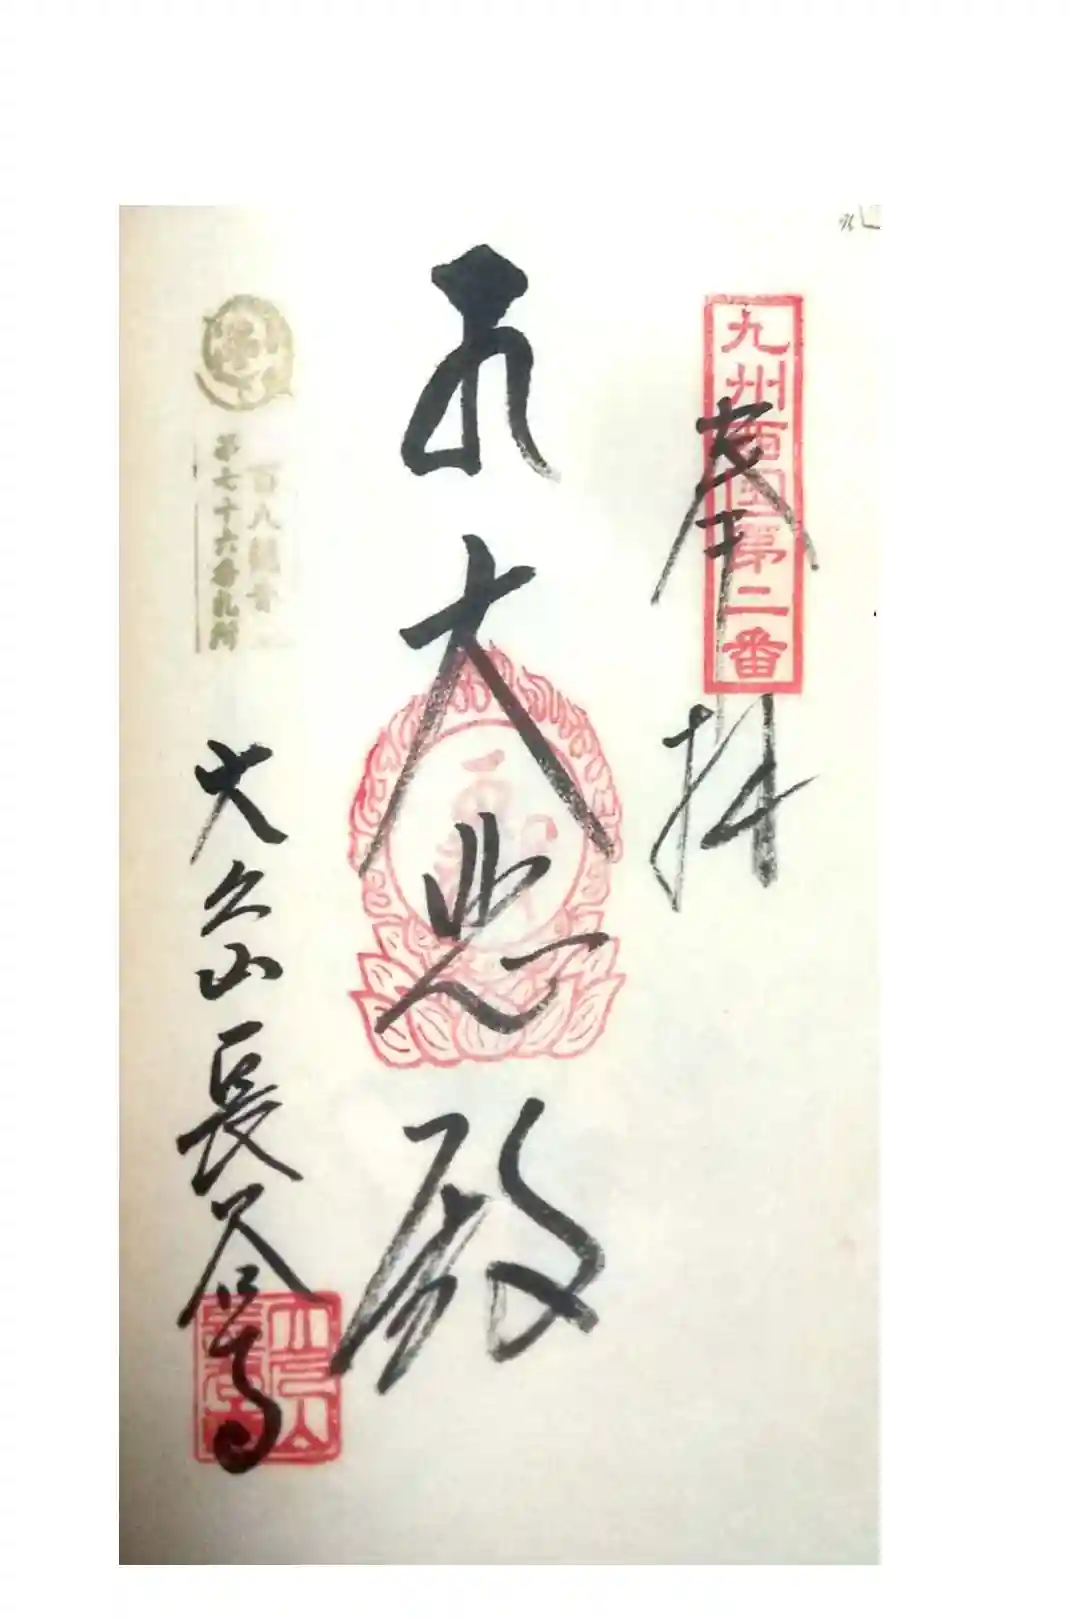 九州西国第二番
奉拝
大悲殿
百八観音
第七十六番札所
大久山長谷寺